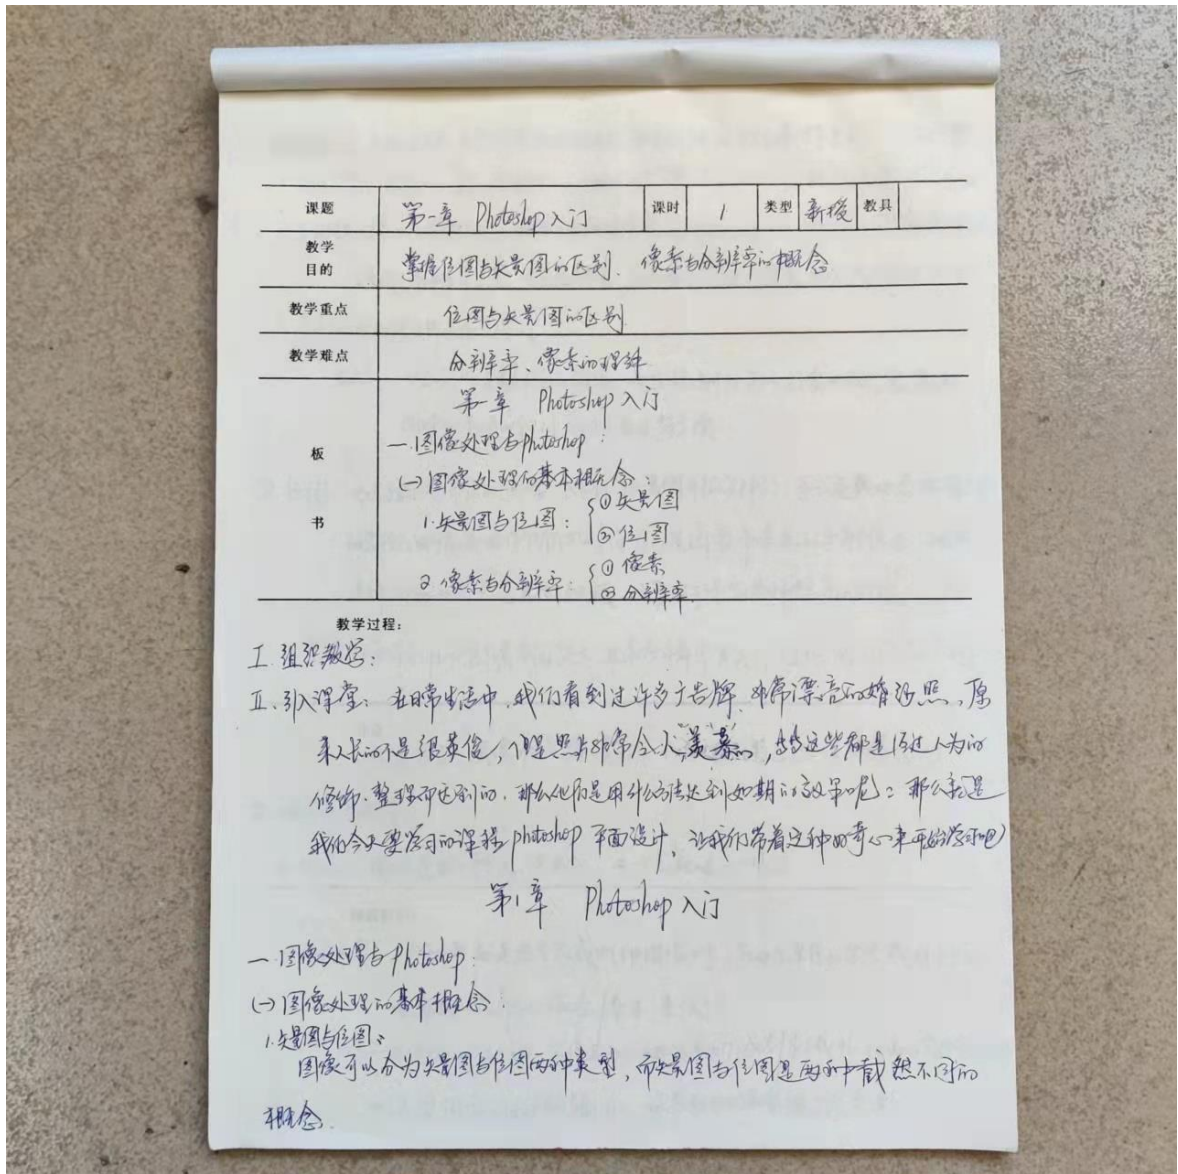 课题 第一章 Photoshop入门 课时 1 类型 新授 教具
教学目的 掌握位图与矢量图的区别、像素与分辨率的概念
教学重点 位图与矢量图的区别
教学难点 分辨率、像素的理解
板书 第一章 Photoshop入门
一.图像处理与photoshop:
(一)图像处理的基本概念:
1.矢量图与位图: ①矢量图
②位图
2.像素与分辨率: ①像素
②分辨率
教学过程:
I.组织教学:
II.引入课堂: 在日常生活中,我们看到过许多广告牌、非常漂亮的婚纱照、原
来人长的不是很英俊,但是照片非常令人羡慕的,这些都是经过人为的
修饰.整理而达到的,那么他们是用什么方法达到如期的效果呢?那么就是
我们今天要学习的课程photoshop平面设计,让我们带着这种好奇心来开始学习吧)
第1章 Photoshop入门
一.图像处理与Photoshop:
(一)图像处理的基本概念:
1.矢量图与位图:
图像可以分为矢量图与位图两种类型,而矢量图与位图是两种截然不同的
概念.